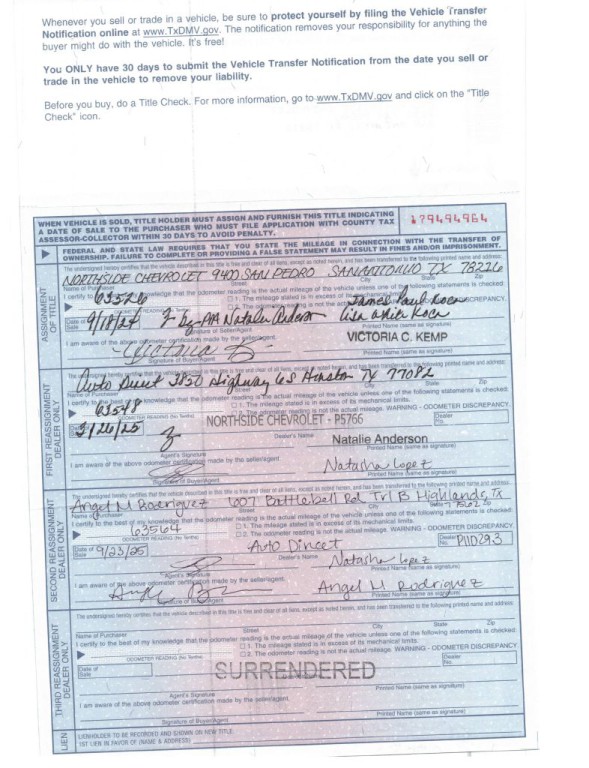 Whenever you sell or trade in a vehicle, be sure to protect yourself by filing the Vehicle Transfer
Notification online at www.TxDMV.gov. The notification removes your responsibility for anything the
buyer might do with the vehicle. It's free!
You ONLY have 30 days to submit the Vehicle Transfer Notification from the date you sell or
trade in the vehicle to remove your liability.
Before you buy, do a Title Check. For more information, go to www.TxDMV.gov and click on the "Title
Check" icon.
WHEN VEHICLE IS SOLD, TITLE HOLDER MUST ASSIGN AND FURNISH THIS TITLE INDICATING
A DATE OF SALE TO THE PURCHASER WHO MUST FILE APPLICATION WITH COUNTY TAX
ASSESSOR-COLLECTOR WITHIN 30 DAYS TO AVOID PENALTY.
179494964
FEDERAL AND STATE LAW REQUIRES THAT YOU STATE THE MILEAGE IN CONNECTION WITH THE TRANSFER OF
OWNERSHIP. FAILURE TO COMPLETE OR PROVIDING A FALSE STATEMENT MAY RESULT IN FINES AND/OR IMPRISONMENT.
ASSIGNMENT
OF TITLE
The undersigned hereby certifies that the vehicle described in this title is free and clear of all liens, except as noted herein, and has been transferred to the following printed name and address:
NORTHSIDE CHEVROLET 9400 SAN PEDRO SAN ANTONIO TX 78216
Name of Purchaser Street City State Zip
I certify to knowledge that the odometer reading is the actual mileage of the vehicle unless one of the following statements is checked:
63526
1. The mileage stated is in excess of its mechanical
2. The odometer reading is not the actual DISCREPANCY.
Date of Sale 9/18/24 by POA Natalie Anderson James Paul Koca
Lisa White Koca
Signature of Seller/Agent Printed Name (same as signature)
I am aware of the above odometer certification made by the seller/agent.
VICTORIA C. KEMP
Signature of Buyer/Agent Printed Name (same as signature)
FIRST REASSIGNMENT
DEALER ONLY
The undersigned hereby certifies that the vehicle described in this title is free and clear of all liens, except as noted herein, and has been transferred to the following printed name and address:
Auto Direct 3850 Highway 6 S Houston TX 77082
Name of Purchaser Street City State Zip
I certify to the best of my knowledge that the odometer reading is the actual mileage of the vehicle unless one of the following statements is checked:
63548
1. The mileage stated is in excess of its mechanical limits.
ODOMETER READING (No Tenths) 2. The odometer reading is not the actual mileage. WARNING - ODOMETER DISCREPANCY.
3/26/25 NORTHSIDE CHEVROLET - P5766 Dealer No.
Dealer's Name Natalie Anderson
Agent's Signature Printed Name (same as signature)
I am aware of the above odometer certification made by the seller/agent. Natasha Lopez
Signature of Buyer/Agent Printed Name (same as signature)
SECOND REASSIGNMENT
DEALER ONLY
The undersigned hereby certifies that the vehicle described in this title is free and clear of all liens, except as noted herein, and has been transferred to the following printed name and address:
Angel M Rodriguez 1607 Battlebell Rd Trl B Highlands, TX 77562
Name of Purchaser Street City State Zip
I certify to the best of my knowledge that the odometer reading is the actual mileage of the vehicle unless one of the following statements is checked:
63564
1. The mileage stated is in excess of its mechanical limits.
ODOMETER READING (No Tenths) 2. The odometer reading is not the actual mileage. WARNING - ODOMETER DISCREPANCY.
Date of Sale 9/23/25 Auto Direct Dealer No. P110293
Dealer's Name Natasha Lopez
Agent's Signature Printed Name (same as signature)
I am aware of the above odometer certification made by the seller/agent.
Angel M Rodriguez
Signature of Buyer/Agent Printed Name (same as signature)
THIRD REASSIGNMENT
DEALER ONLY
The undersigned hereby certifies that the vehicle described in this title is free and clear of all liens, except as noted herein, and has been transferred to the following printed name and address:
Name of Purchaser Street City State Zip
I certify to the best of my knowledge that the odometer reading is the actual mileage of the vehicle unless one of the following statements is checked:
1. The mileage stated is in excess of its mechanical limits.
ODOMETER READING (No Tenths) 2. The odometer reading is not the actual mileage. WARNING - ODOMETER DISCREPANCY.
Date of Sale Dealer No.
SURRENDERED
Agent's Signature Printed Name (same as signature)
I am aware of the above odometer certification made by the seller/agent.
Signature of Buyer/Agent Printed Name (same as signature)
LIEN
LIENHOLDER TO BE RECORDED AND SHOWN ON NEW TITLE:
1ST LIEN IN FAVOR OF (NAME & ADDRESS)